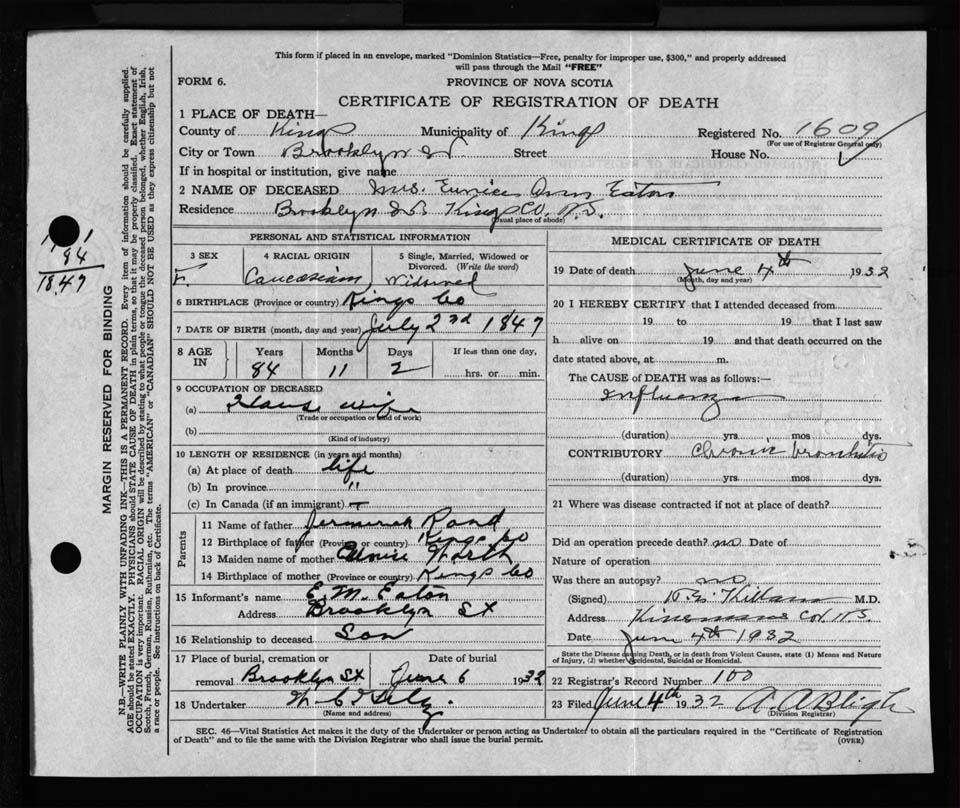 This form if placed in an envelope, marked "Dominion Statistics—Free, penalty for improper use, $300," and properly addressed
will pass through the Mail "FREE"
FORM 6.
PROVINCE OF NOVA SCOTIA
CERTIFICATE OF REGISTRATION OF DEATH
1 PLACE OF DEATH—
County of Kings Municipality of Kings Registered No. 1609
(For use of Registrar General only)
City or Town Brooklyn St Street House No.
If in hospital or institution, give name
2 NAME OF DECEASED Mrs. Eunice Ann Eaton
Residence Brooklyn St. Kings Co. N.S.
(Usual place of abode)
PERSONAL AND STATISTICAL INFORMATION
3 SEX 4 RACIAL ORIGIN 5 Single, Married, Widowed or
Divorced. (Write the word)
F. Caucasian Widowed
6 BIRTHPLACE (Province or country) Kings Co
7 DATE OF BIRTH (month, day and year) July 2nd 1847
8 AGE IN Years Months Days If less than one day,
84 11 2 hrs. or min.
9 OCCUPATION OF DECEASED
(a) House wife
(Trade or occupation or kind of work)
(b)
(Kind of industry)
10 LENGTH OF RESIDENCE (in years and months)
(a) At place of death life
(b) In province "
(c) In Canada (if an immigrant) —
Parents
11 Name of father Jermiriah Rand
12 Birthplace of father (Province or country) Kings Co
13 Maiden name of mother Eunice
14 Birthplace of mother (Province or country) Kings Co
15 Informant's name E. M. Eaton
Address Brooklyn St
16 Relationship to deceased Son
17 Place of burial, cremation or Date of burial
removal Brooklyn St June 6 1932
18 Undertaker
(Name and address)
MEDICAL CERTIFICATE OF DEATH
19 Date of death June 4th 1932
(Month, day and year)
20 I HEREBY CERTIFY that I attended deceased from
19 to 19 that I last saw
h alive on 19 and that death occurred on the
date stated above, at m.
The CAUSE of DEATH was as follows:—
Influenza
(duration) yrs. mos dys.
CONTRIBUTORY Chronic bronchitis
(duration) yrs. mos. dys.
21 Where was disease contracted if not at place of death?
Did an operation precede death? no Date of
Nature of operation
Was there an autopsy? no
(Signed) Killam M.D.
Address Co. N.S.
Date June 4th 1932
State the Disease causing Death, or in death from Violent Causes, state (1) Means and Nature
of Injury, (2) whether Accidental, Suicidal or Homicidal.
22 Registrar's Record Number 100
23 Filed June 4th 1932 A. A Bligh
(Division Registrar)
SEC. 46—Vital Statistics Act makes it the duty of the Undertaker or person acting as Undertaker to obtain all the particulars required in the "Certificate of Registration
of Death" and to file the same with the Division Registrar who shall issue the burial permit. (OVER)
84
1847
MARGIN RESERVED FOR BINDING
N.B.—WRITE PLAINLY WITH UNFADING INK—THIS IS A PERMANENT RECORD. Every item of information should be carefully supplied.
AGE should be stated EXACTLY. PHYSICIANS should STATE CAUSE OF DEATH in plain terms, so that it may be properly classified. Exact statement of
OCCUPATION is very important. RACIAL ORIGIN will be described by stating to what people or tongue the deceased person belonged, whether English, Irish,
Scotch, French, German, Russian, Ruthenian, etc. The terms "AMERICAN" or "CANADIAN" SHOULD NOT BE USED as they express citizenship but not
a race or people. See instructions on back of Certificate.